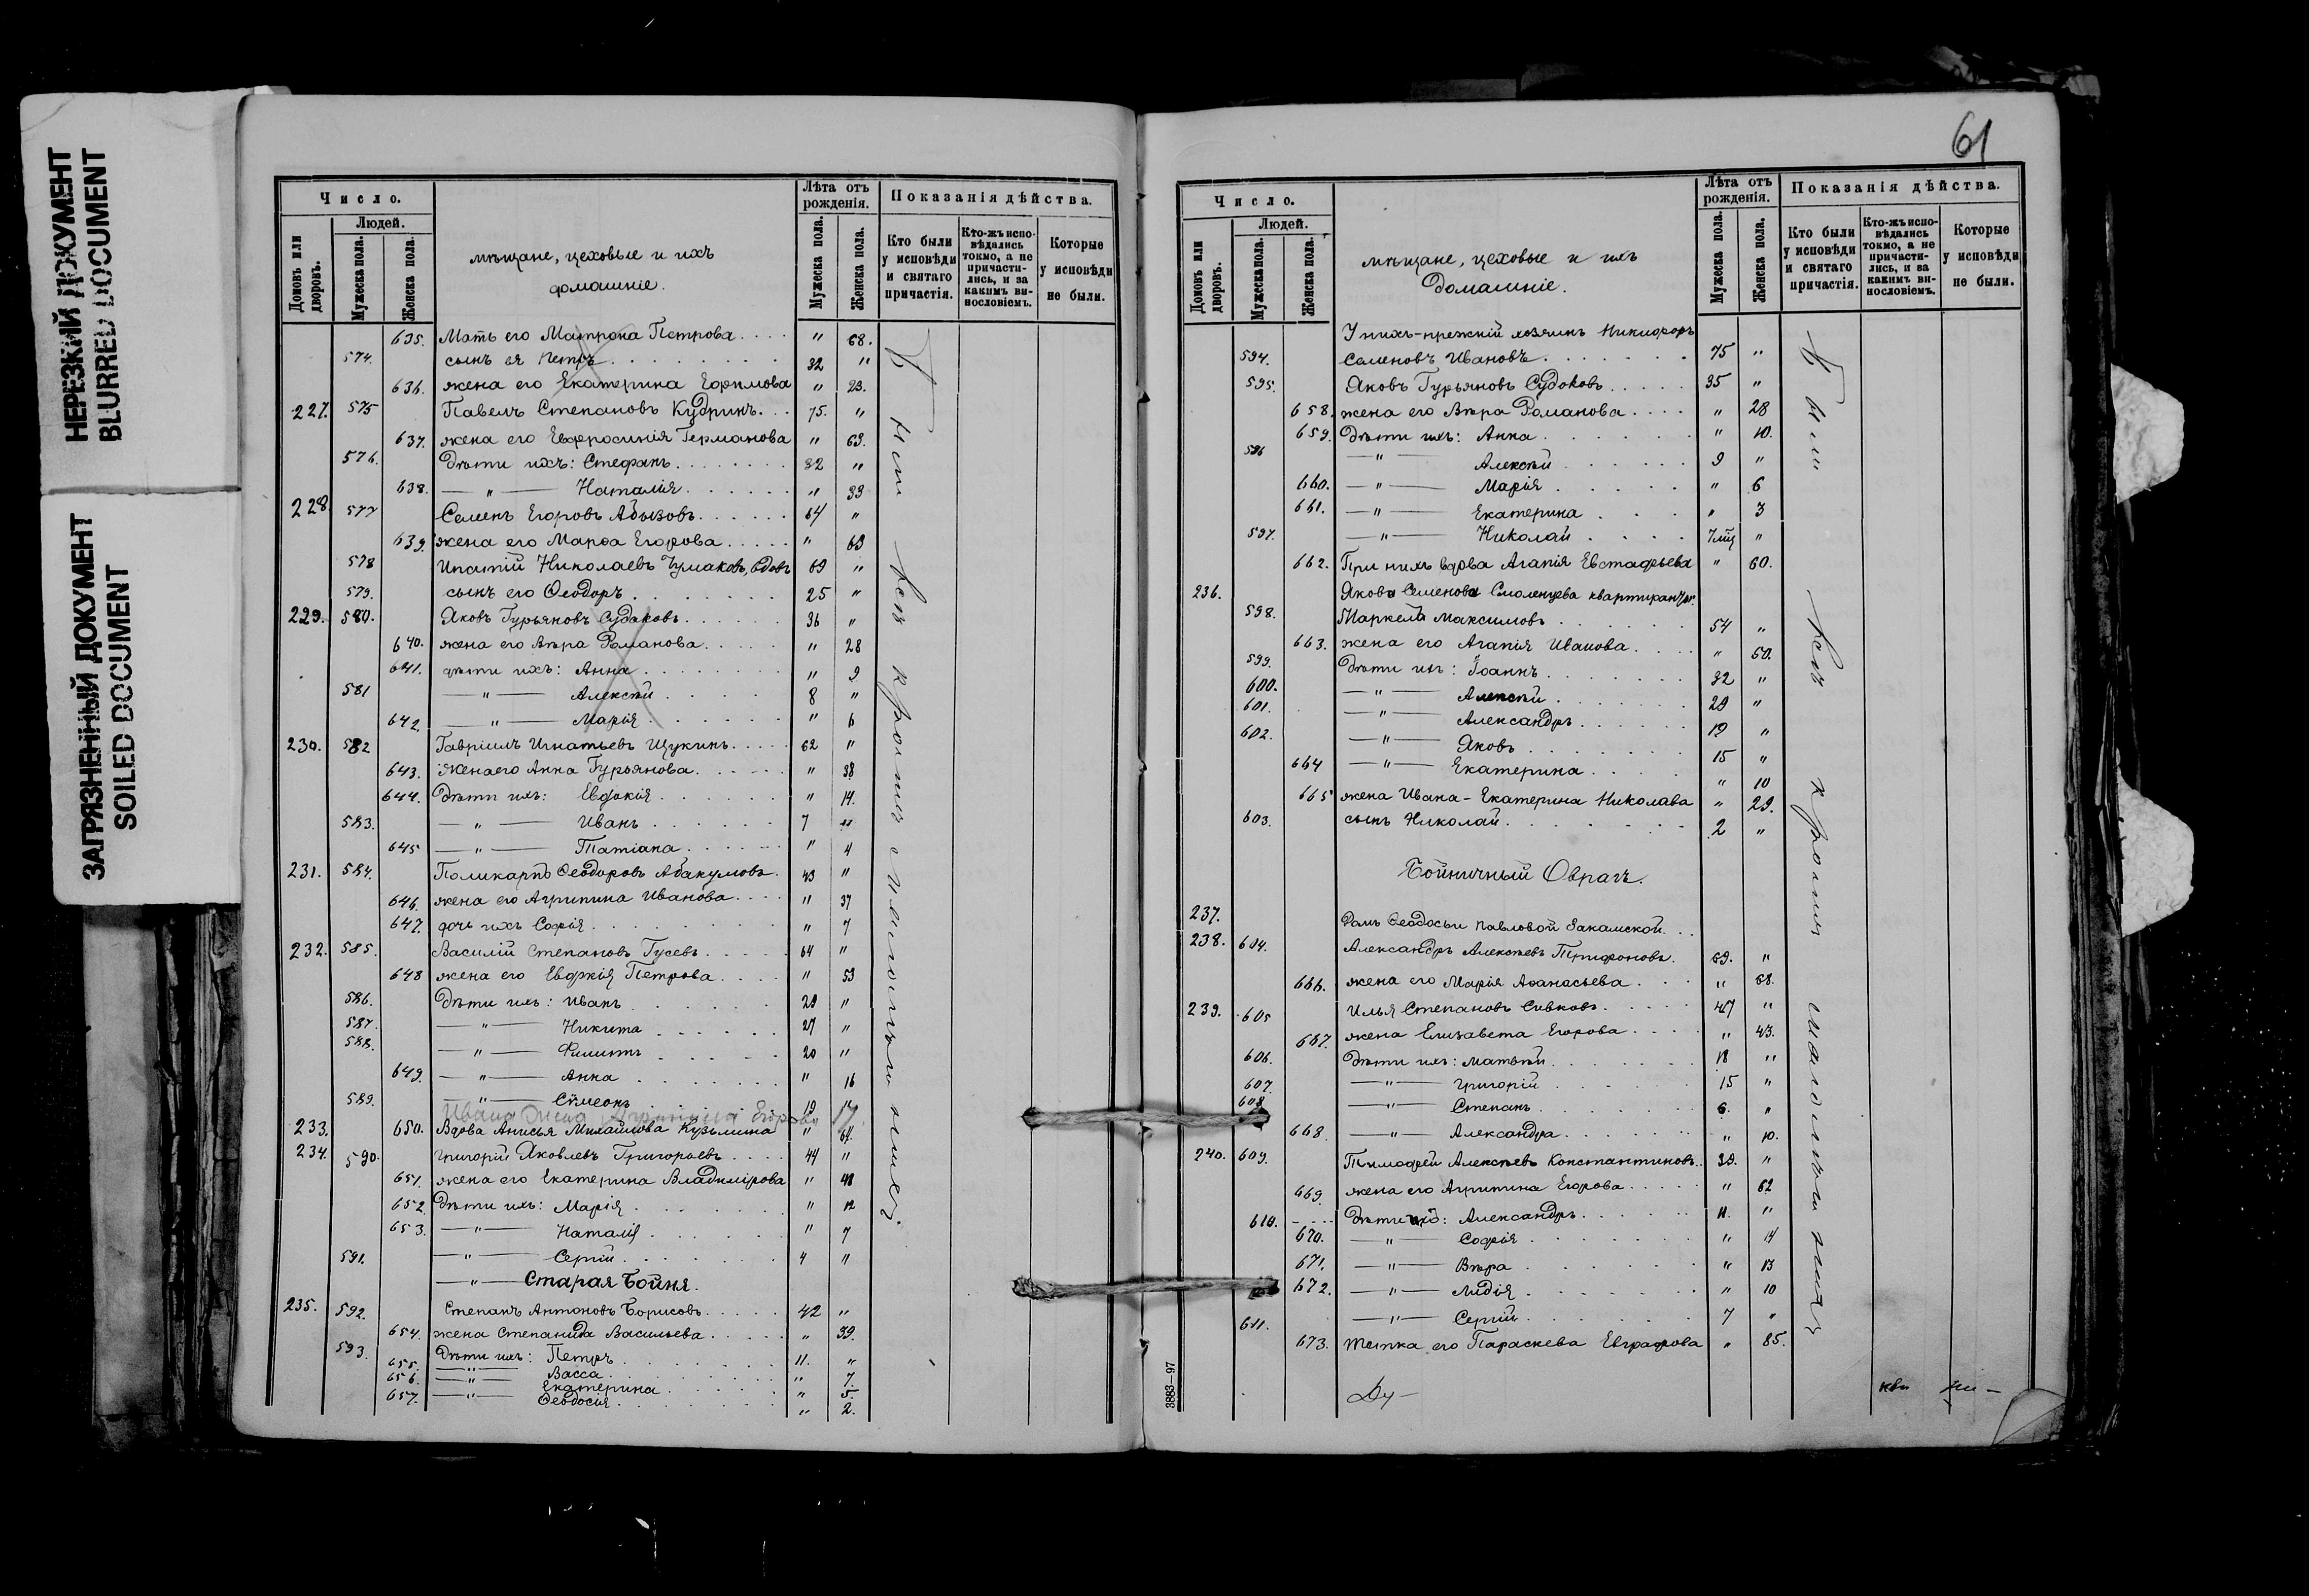 НЕРЕЗКИЙ ДОКУМЕНТ
BLURRED DOCUMENT
ЗАГРЯЗНЕННЫЙ ДОКУМЕНТ
SOILED DOCUMENT
Число.
Людей.
Домовъ или дворовъ.
Мужеска пола.
Женска пола.
мѣщане, цеховые и ихъ
домашніе.
Лѣта отъ рожденія.
Мужеска пола.
Женска пола.
Показанія дѣйства.
Кто были у исповѣди и святаго причастія.
Кто-жъ исповѣдались токмо, а не причастились, и за какимъ винословіемъ.
Которые у исповѣди не были.
635. Мать его Матрона Петрова . . . " 68.
574. сынъ ея Петръ . . . 32 "
636. жена его Екатерина Ефимова " 23.
227. 575 Павелъ Степановъ Кудринъ . . . 75. "
637. жена его Евфросинія Германова " 63.
576. Дѣти ихъ: Стефанъ . . . 32 "
638. — " — Наталія . . . " 33
228. 577 Семенъ Егоровъ Абызовъ . . . 64 "
639. жена его Марѳа Егорова . . . " 63
578 Ипатій Николаевъ Чумаковъ, вдовъ 69 "
579. сынъ его Ѳеодоръ . . . 25 "
229. 580. Яковъ Гурьяновъ Судаковъ . . . 36 "
640. жена его Вѣра Романова . . . " 28
641. дѣти ихъ: Анна . . . " 9
581 — " — Алексѣй . . . 8 "
642. — " — Марія . . . " 6
230. 582 Гавріилъ Игнатьевъ Щукинъ . . . 62 "
643. Жена его Анна Гурьянова . . . " 38
644. Дѣти ихъ: Евдокія . . . " 14.
583. — " — Иванъ . . . 7 "
645 — " — Татіана . . . " 4
231. 584. Поликарпъ Ѳеодоровъ Абакумовъ . 43 "
646. жена его Агрипина Иванова . . . " 37
647. дочь ихъ Софія . . . " 7
232. 585. Василій Степановъ Гусевъ . . . 64 "
648 жена его Евдокія Петрова . . . " 53
586. Дѣти ихъ: Иванъ . . . 29 "
587. — " — Никита . . . 27 "
588. — " — Филиппъ . . . 20 "
649. — " — Анна . . . " 16
589. — " — Сѵмеонъ . . . 19 "
Ивана жена Агрипина Егорова 17.
233. 650. Вдова Анисья Михайлова Кузьмина " 64.
234. 590. Григорій Яковлевъ Григорьевъ . . . 44 "
651. жена его Екатерина Владимірова " 48
652 Дѣти ихъ: Марія . . . " 12
653. — " — Наталія . . . " 7
591. — " — Сергій . . . 4 "
— " — Старая Бойня.
235. 592. Степанъ Антоновъ Борисовъ . . . 42 "
654. жена Степанида Васильева . . . " 39.
593. Дѣти ихъ: Петръ . . . 11. "
655. — " — Васса . . . " 7.
656. — " — Екатерина . . . " 5.
657. — " — Ѳеодосія . . . " 2.
61
Число.
Людей.
Домовъ или дворовъ.
Мужеска пола.
Женска пола.
мѣщане, цеховые и ихъ
домашніе.
Лѣта отъ рожденія.
Мужеска пола.
Женска пола.
Показанія дѣйства.
Кто были у исповѣди и святаго причастія.
Кто-жъ исповѣдались токмо, а не причастились, и за какимъ винословіемъ.
Которые у исповѣди не были.
У нихъ-прежній хозяинъ Никифоръ
594. Семеновъ Ивановъ . . . 75 "
595. Яковъ Гурьяновъ Судоковъ . . . 35 "
658. жена его Вѣра Романова . . . " 28
659. Дѣти ихъ: Анна . . . " 10.
596 — " — Алексѣй . . . 9 "
660. — " — Марія . . . " 6
661. — " — Екатерина . . . " 3
597. — " — Николай . . . "
662. При нихъ вдова Агапія Евстафьева " 60.
236. Якова Семенова Смоленцева
598. Маркелъ Максимовъ . . . 54 "
663. жена его Агапія Иванова . . . " 50.
599. Дѣти ихъ: Іоаннъ . . . 32 "
600. — " — Алексѣй . . . 29 "
601. — " — Александръ . . . 19 "
602. — " — Яковъ . . . 15 "
664 — " — Екатерина . . . " 10
665 жена Ивана - Екатерина Николава " 29.
603. сынъ Николай . . . 2 "
Бойничный Оврагъ.
237. Домъ Ѳеодосьи Павловой Закамской . . .
238. 604. Александръ Алексѣевъ Трифоновъ. 69. "
666. жена его Марія Аѳанасьева . . . " 68.
239. 605 Илья Степановъ Сивковъ . . . 47 "
667. жена Елизавета Егорова . . . " 43.
606. Дѣти ихъ: Матвѣй . . . 18 "
607. — " — Григорій . . . 15 "
608 — " — Степанъ . . . 6. "
668 — " — Александра . . . " 10.
240. 609. Тимофей Алексѣевъ Константиновъ. 39. "
669 жена его Агрипина Егорова . . . " 62
610. Дѣти ихъ: Александръ . . . 11. "
670. — " — Софія . . . " 14
671. — " — Вѣра . . . " 13
672. — " — Лидія . . . " 10
611. — " — Сергій . . . 7 "
673. Тетка его Параскева Евграфова " 85.
3883—97